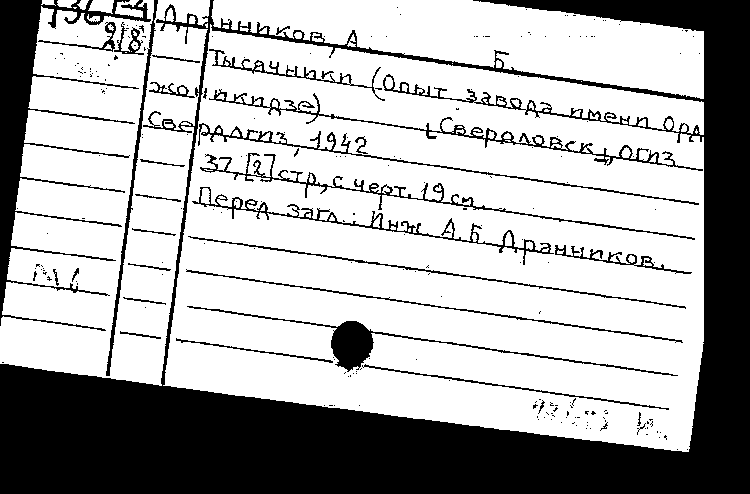 Дранников, А. Б.
218
Тысячники (Опыт завода имени Орд
жоникидзе). [Свердловск], ОГИЗ
Свердлгиз, 1942
37, [2] стр, с черт. 19 см.
Перед загл.: Инж А.Б Дранников.